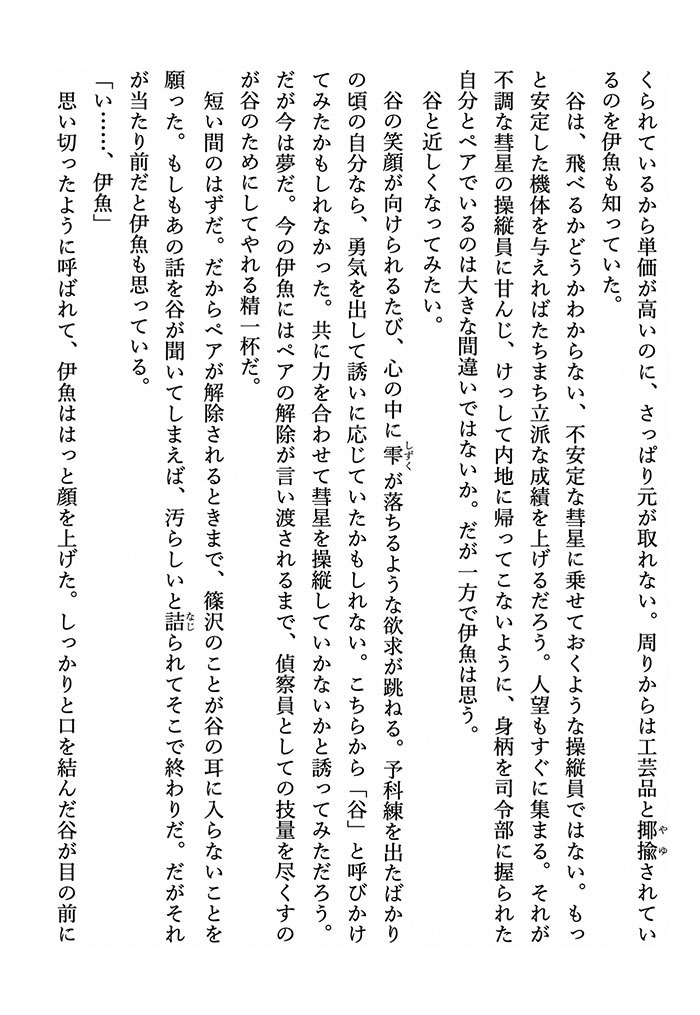 くられているから単価が高いのに、さっぱり元が取れない。周りからは工芸品と揶揄されてい
るのを伊魚も知っていた。
谷は、飛べるかどうかわからない、不安定な彗星に乗せておくような操縦員ではない。もっ
と安定した機体を与えればたちまち立派な成績を上げるだろう。人望もすぐに集まる。それが
不調な彗星の操縦員に甘んじ、けっして内地に帰ってこないように、身柄を司令部に握られた
自分とペアでいるのは大きな間違いではないか。だが一方で伊魚は思う。
谷と近しくなってみたい。
谷の笑顔が向けられるたび、心の中に雫が落ちるような欲求が跳ねる。予科練を出たばかり
の頃の自分なら、勇気を出して誘いに応じていたかもしれない。こちらから「谷」と呼びかけ
てみたかもしれなかった。共に力を合わせて彗星を操縦していかないかと誘ってみただろう。
だが今は夢だ。今の伊魚にはペアの解除が言い渡されるまで、偵察員としての技量を尽くすの
が谷のためにしてやれる精一杯だ。
短い間のはずだ。だからペアが解除されるときまで、篠沢のことが谷の耳に入らないことを
願った。もしもあの話を谷が聞いてしまえば、汚らしいと詰られてそこで終わりだ。だがそれ
が当たり前だと伊魚も思っている。
「い……、伊魚」
思い切ったように呼ばれて、伊魚ははっと顔を上げた。しっかりと口を結んだ谷が目の前に